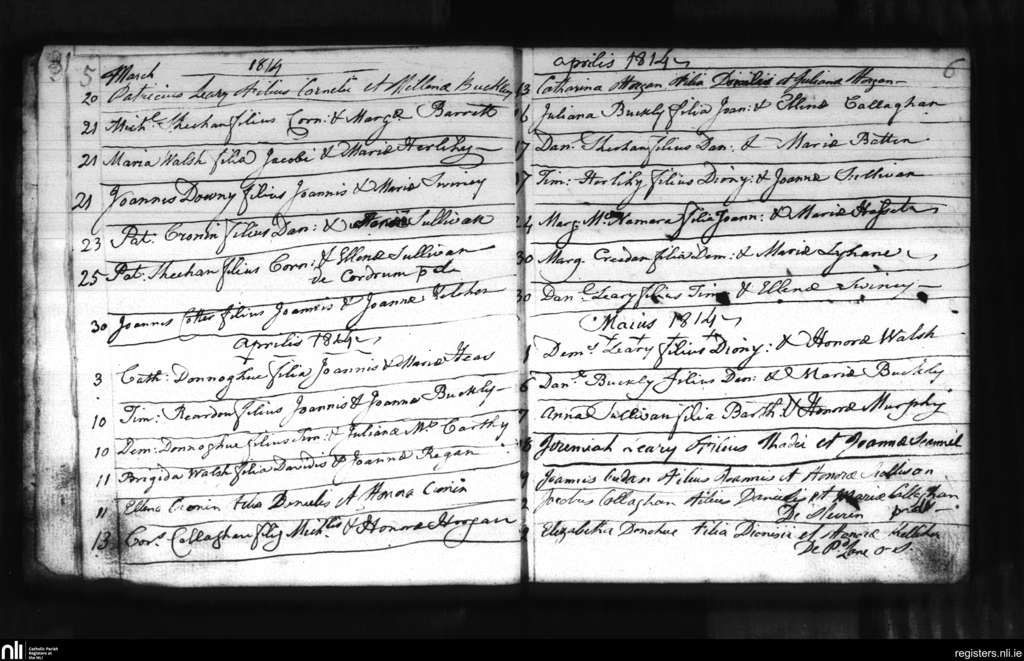 31
5
March 1814
20 Patricius Leary Filius Cornelii et Hellenæ Buckley
21 Michl. Sheehan filius Corn: & Margæ Barrett
21 Maria Walsh filia Jacobi & Mariæ Herlihy
21 Joannes Downy filius Joannis & Mariæ Swiney
23 Pat: Cronin filius Dan: & Sullivan
25 Pat. Sheehan filius Corn: & Ellenæ Sullivan
de Cordrum
30 Joannes Cotter filius Joannis & Joannæ Kelcher
aprilis 1814
3 Cath: Donnoghue filia Joannis & Mariæ
10 Tim: Reardon filius Joannis & Joannæ Buckly
10 Dem: Donnoghue filius Tim: & Julianæ Mc Carthy
11 Brigida Walsh filia Davidis & Joannæ Regan
11 Ellena Cronin filia Danielis et Honora Cronin
13 Cors. Callaghan fils Michlis & Honoræ Horgan
6
aprilis 1814
13 Catharina Horgan filia Danielis et Julianæ Horgan
16 Juliana Buckly filia Joan: & Ellenæ Callaghan
17 Dan: Sheehan filius Dan: & Mariæ Batten
17 Tim: Herlihy filius Diony: & Joannæ Sullivan
24 Marg. Mc Namara filia Joann: & Mariæ
30 Marg. Creedan filia Dem: & Mariæ Lyhane
30 Danl. Leary filius Tim: & Ellenæ Swiney
Maius 1814
1 Dems. Leary filius Diony: & Honoræ Walsh
6 Danl. Buckly filius Den: & Mariæ Buckly
7 Anna Sullivan filia Barth: & Honoræ Murphy
8 Jeremiah Leary Filius Thadei et Joannæ
9 Joannes filius Joannis et Honoræ
2 Jacobus Callaghan filius Danielis et Mariæ Callaghan
De
9 Elizabetha Donohue filia Dionisii et Honoræ Kelleher
De Pd Lane
nli
Catholic Parish
Registers at
the NLI
registers.nli.ie